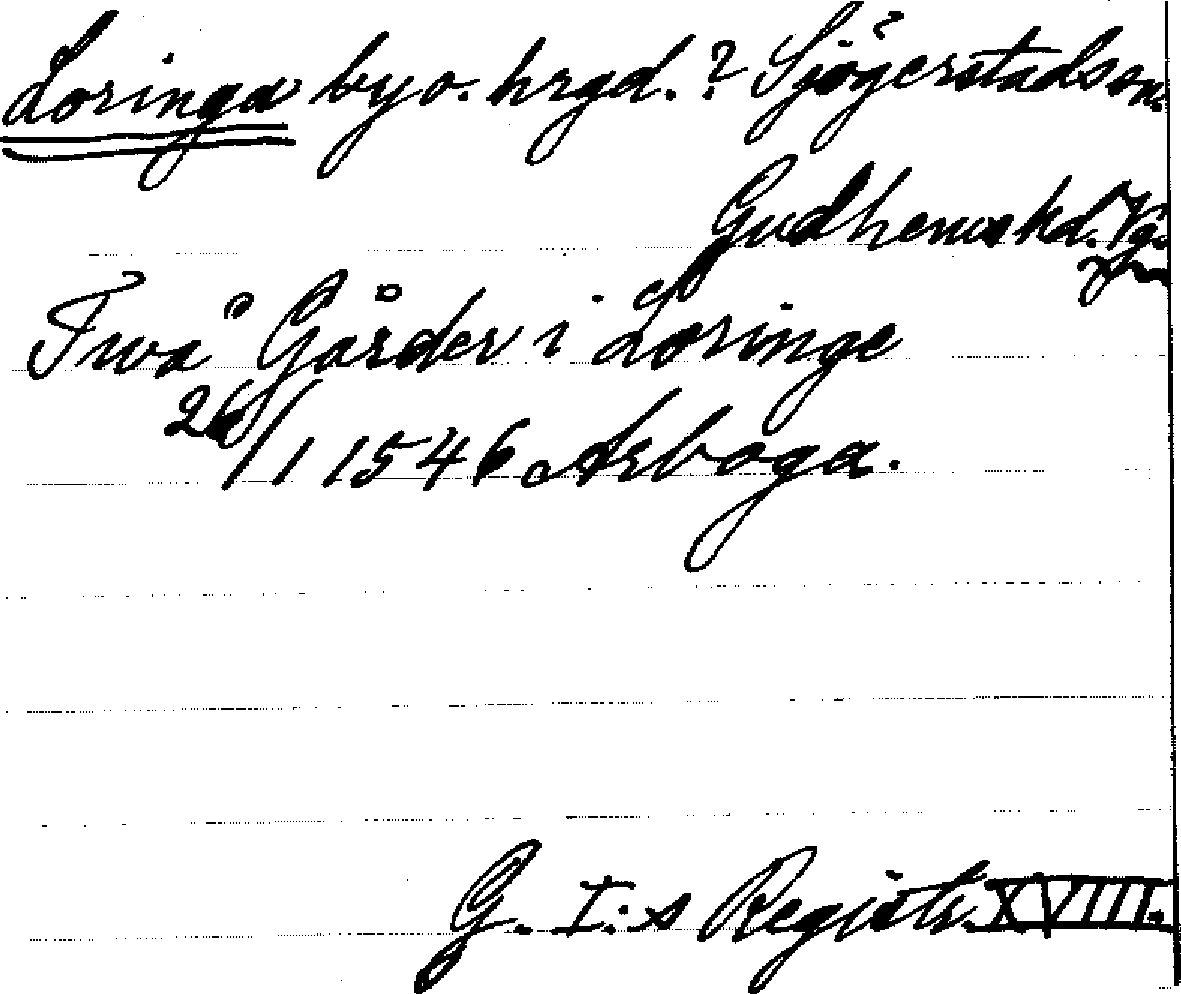 Loringa by o. hrgd. ? Sjögerstads sn.
Gudhems hd. Vg.
Twå Gårder i Loringe
26/1 1546 Arboga.
G. I:s Registr. XVIII.